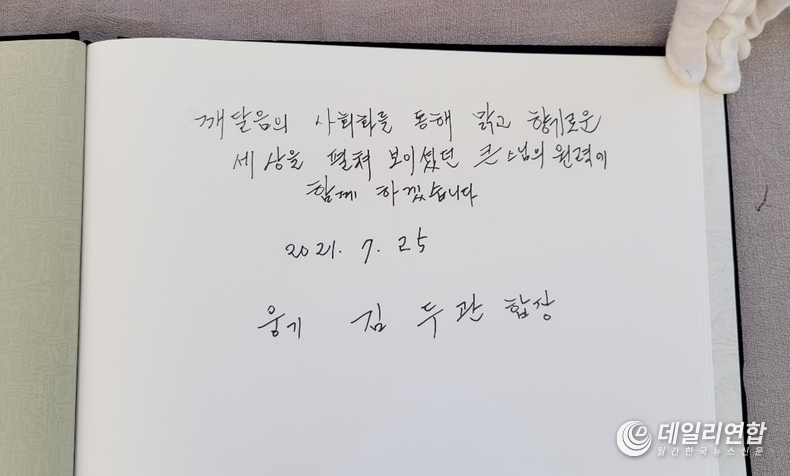 깨달음의 사회화를 통해 맑고 향기로운
세상을 펼쳐 보이셨던 큰스님의 원력에
함께 하겠습니다
2021. 7. 25
웅기 김두관 합장
데일리연합
월간한국뉴스신문